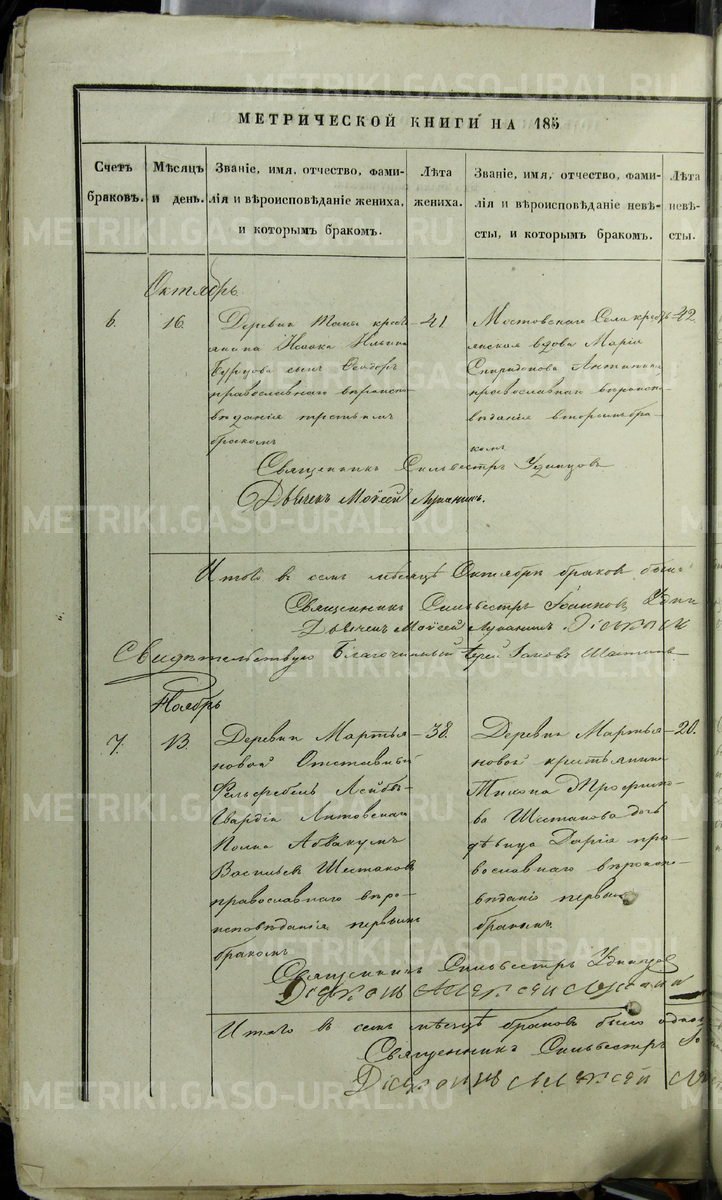 МЕТРИЧЕСКОЙ КНИГИ НА 185
Счетъ браковъ.
Мѣсяцъ и день.
Званіе, имя, отчество, фами-
лія и вѣроисповѣданіе жениха,
и которымъ бракомъ.
Лѣта жениха.
Званіе, имя, отчество, фами-
лія и вѣроисповѣданіе невѣ-
сты, и которымъ бракомъ.
Лѣта невѣ-
сты.
Октябрь
6.
16.
Деревни крест
янина Исаака Ильина
Бурцова сынъ Ѳеодоръ
православнаго вѣроиспо
вѣданія третьимъ
бракомъ
41
Мостовскаго Села крестъ
янская вдова Марія
Спиридонова Антипина
православнаго вѣроиспо
вѣданія вторымъ бра
комъ
42
Священникъ Сильвестръ Удинцовъ
Дьячекъ Моѵсей Лукинъ.
Итого в семъ мѣсяцѣ Октябрѣ браков былъ
Священникъ Сильвестръ Іоанновъ Удин
Дьячекъ Моѵсей
Свидѣтельствую Благочинный Іерей Шестак
Ноябрь
7.
13.
Деревни Мартья
новой Отставный
Фельдфебель Лейбъ
Гвардіи Литовскаго
Полка Аввакумъ
Васильевъ Шестаковъ
православнаго вѣро-
исповѣданія первымъ
бракомъ
38.
Деревни Мартья
новой крестьянина
Тихона Трофимо-
ва Шестакова дочь
дѣвица Дарія пра-
вославнаго вѣроиспо-
вѣданія первымъ
бракомъ.
20.
Священникъ Сильвестръ Удинцов
Дьяконъ Алексѣй
Итого в семъ мѣсяцѣ браковъ было одинъ
Священникъ Сильвестръ
Дьяконъ Алексѣй
METRIKI.GASO-URAL.RU